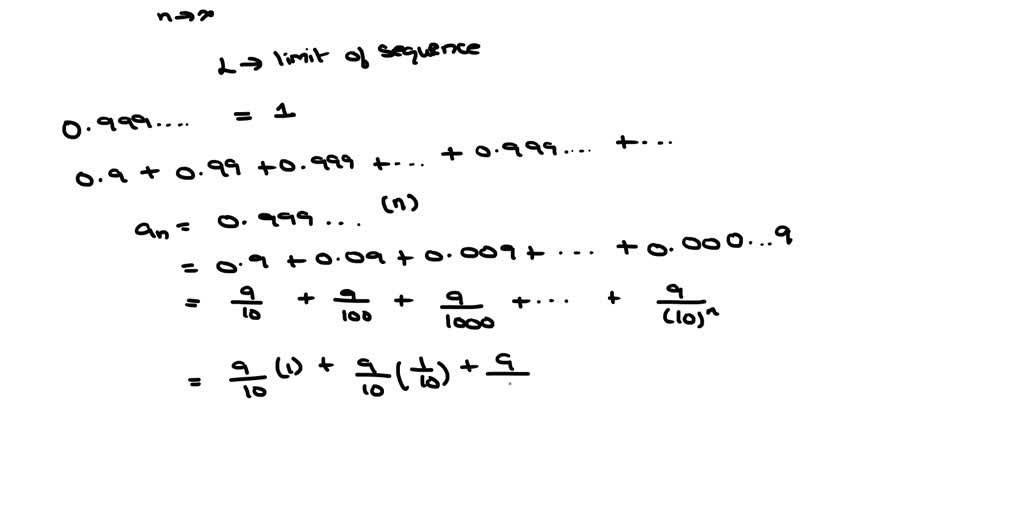 n→∞
L→ limit of sequence
0.999.... = 1
0.9 + 0.99 + 0.999 +... + 0.999... + ...
an = 0.999... (n)
= 0.9 + 0.09 + 0.009 + ... + 0.000...9
= 9/10 + 9/100 + 9/1000 + ... + 9/(10)^n
= 9/10 (1) + 9/10 (1/10) + 9/